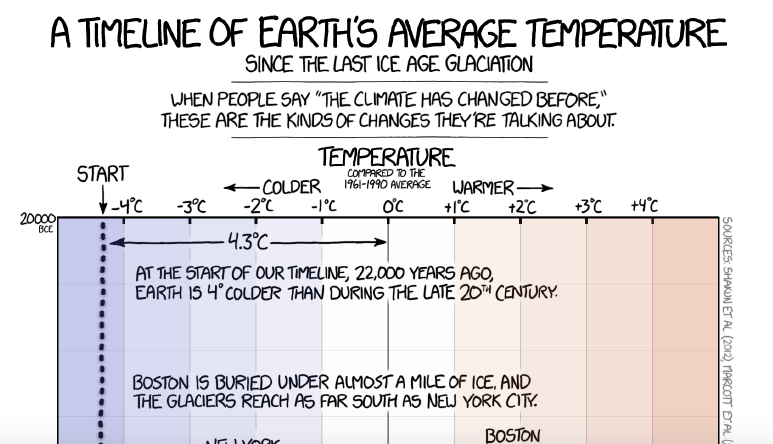 A TIMELINE OF EARTH'S AVERAGE TEMPERATURE
SINCE THE LAST ICE AGE GLACIATION
WHEN PEOPLE SAY "THE CLIMATE HAS CHANGED BEFORE,"
THESE ARE THE KINDS OF CHANGES THEY'RE TALKING ABOUT.
START
TEMPERATURE
COMPARED TO THE
1961-1990 AVERAGE
COLDER
WARMER
-4°C -3°C -2°C -1°C 0°C +1°C +2°C +3°C +4°C
20000
BCE
4.3°C
AT THE START OF OUR TIMELINE, 22,000 YEARS AGO,
EARTH IS 4° COLDER THAN DURING THE LATE 20TH CENTURY.
BOSTON IS BURIED UNDER ALMOST A MILE OF ICE, AND
THE GLACIERS REACH AS FAR SOUTH AS NEW YORK CITY.
NEW YORK
BOSTON
SOURCES: SHAKUN ET AL (2012), MARCOTT ET AL